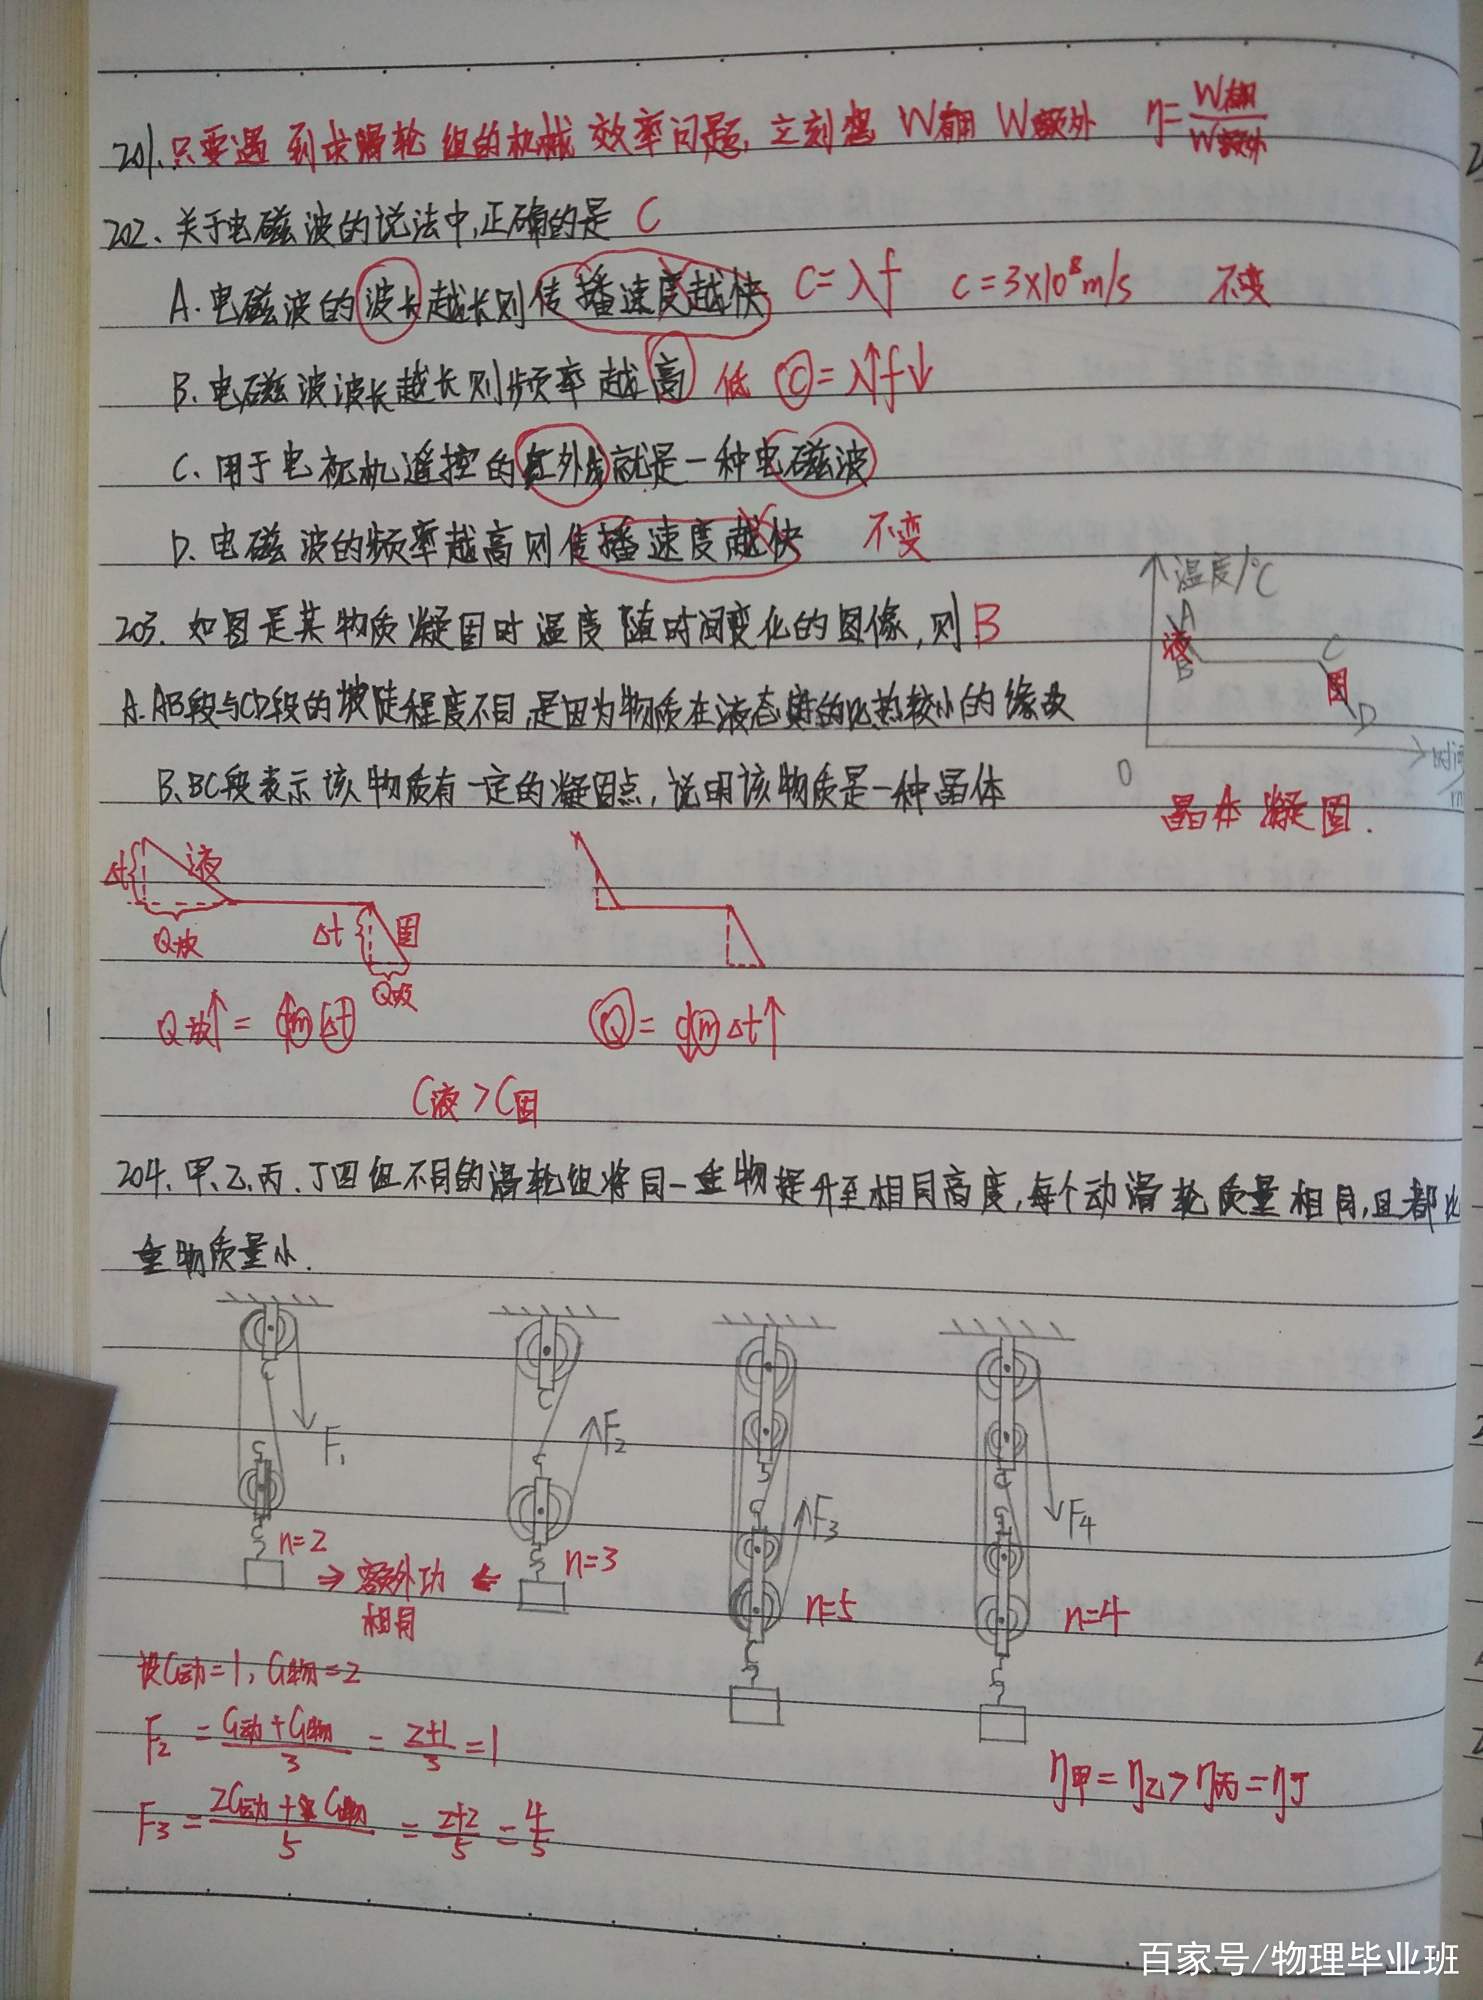 201.只要遇到求滑轮组的机械效率问题,立刻想 W有用 W额外 η=W有用/W额外
202、关于电磁波的说法中,正确的是 C
A.电磁波的波长越长则传播速度越快 C=λf C=3×10⁸m/s 不变
B.电磁波波长越长则频率越高 低 C=λ↑f↓
C、用于电视机遥控的红外线就是一种电磁波
D.电磁波的频率越高则传播速度越快 不变
203.如图是某物质凝固时温度随时间变化的图像,则B
温度/℃
A
液
B
C
固
D
0
时间/
晶体凝固.
A.AB段与CD段的坡陡程度不同,是因为物质在液态时的比热较小的缘故
B、BC段表示该物质有一定的凝固点,说明该物质是一种晶体
Δt 液
Q放 Δt 固
Q放
Q放↑=c↑mΔt Q=c↓mΔt↑
C液>C固
204.甲、乙、丙、丁四组不同的滑轮组将同一重物提升至相同高度,每个动滑轮质量相同,且都比
重物质量小.
F₁ F₂ F₃ F₄
n=2 ⇒额外功⇐ n=3 n=5 n=4
相同
设G动=1,G物=2
F₂=G动+G物/3=2+1/3=1
η甲=η乙>η丙=η丁
F₃=2G动+G物/5=2+2/5=4/5
百家号/物理毕业班